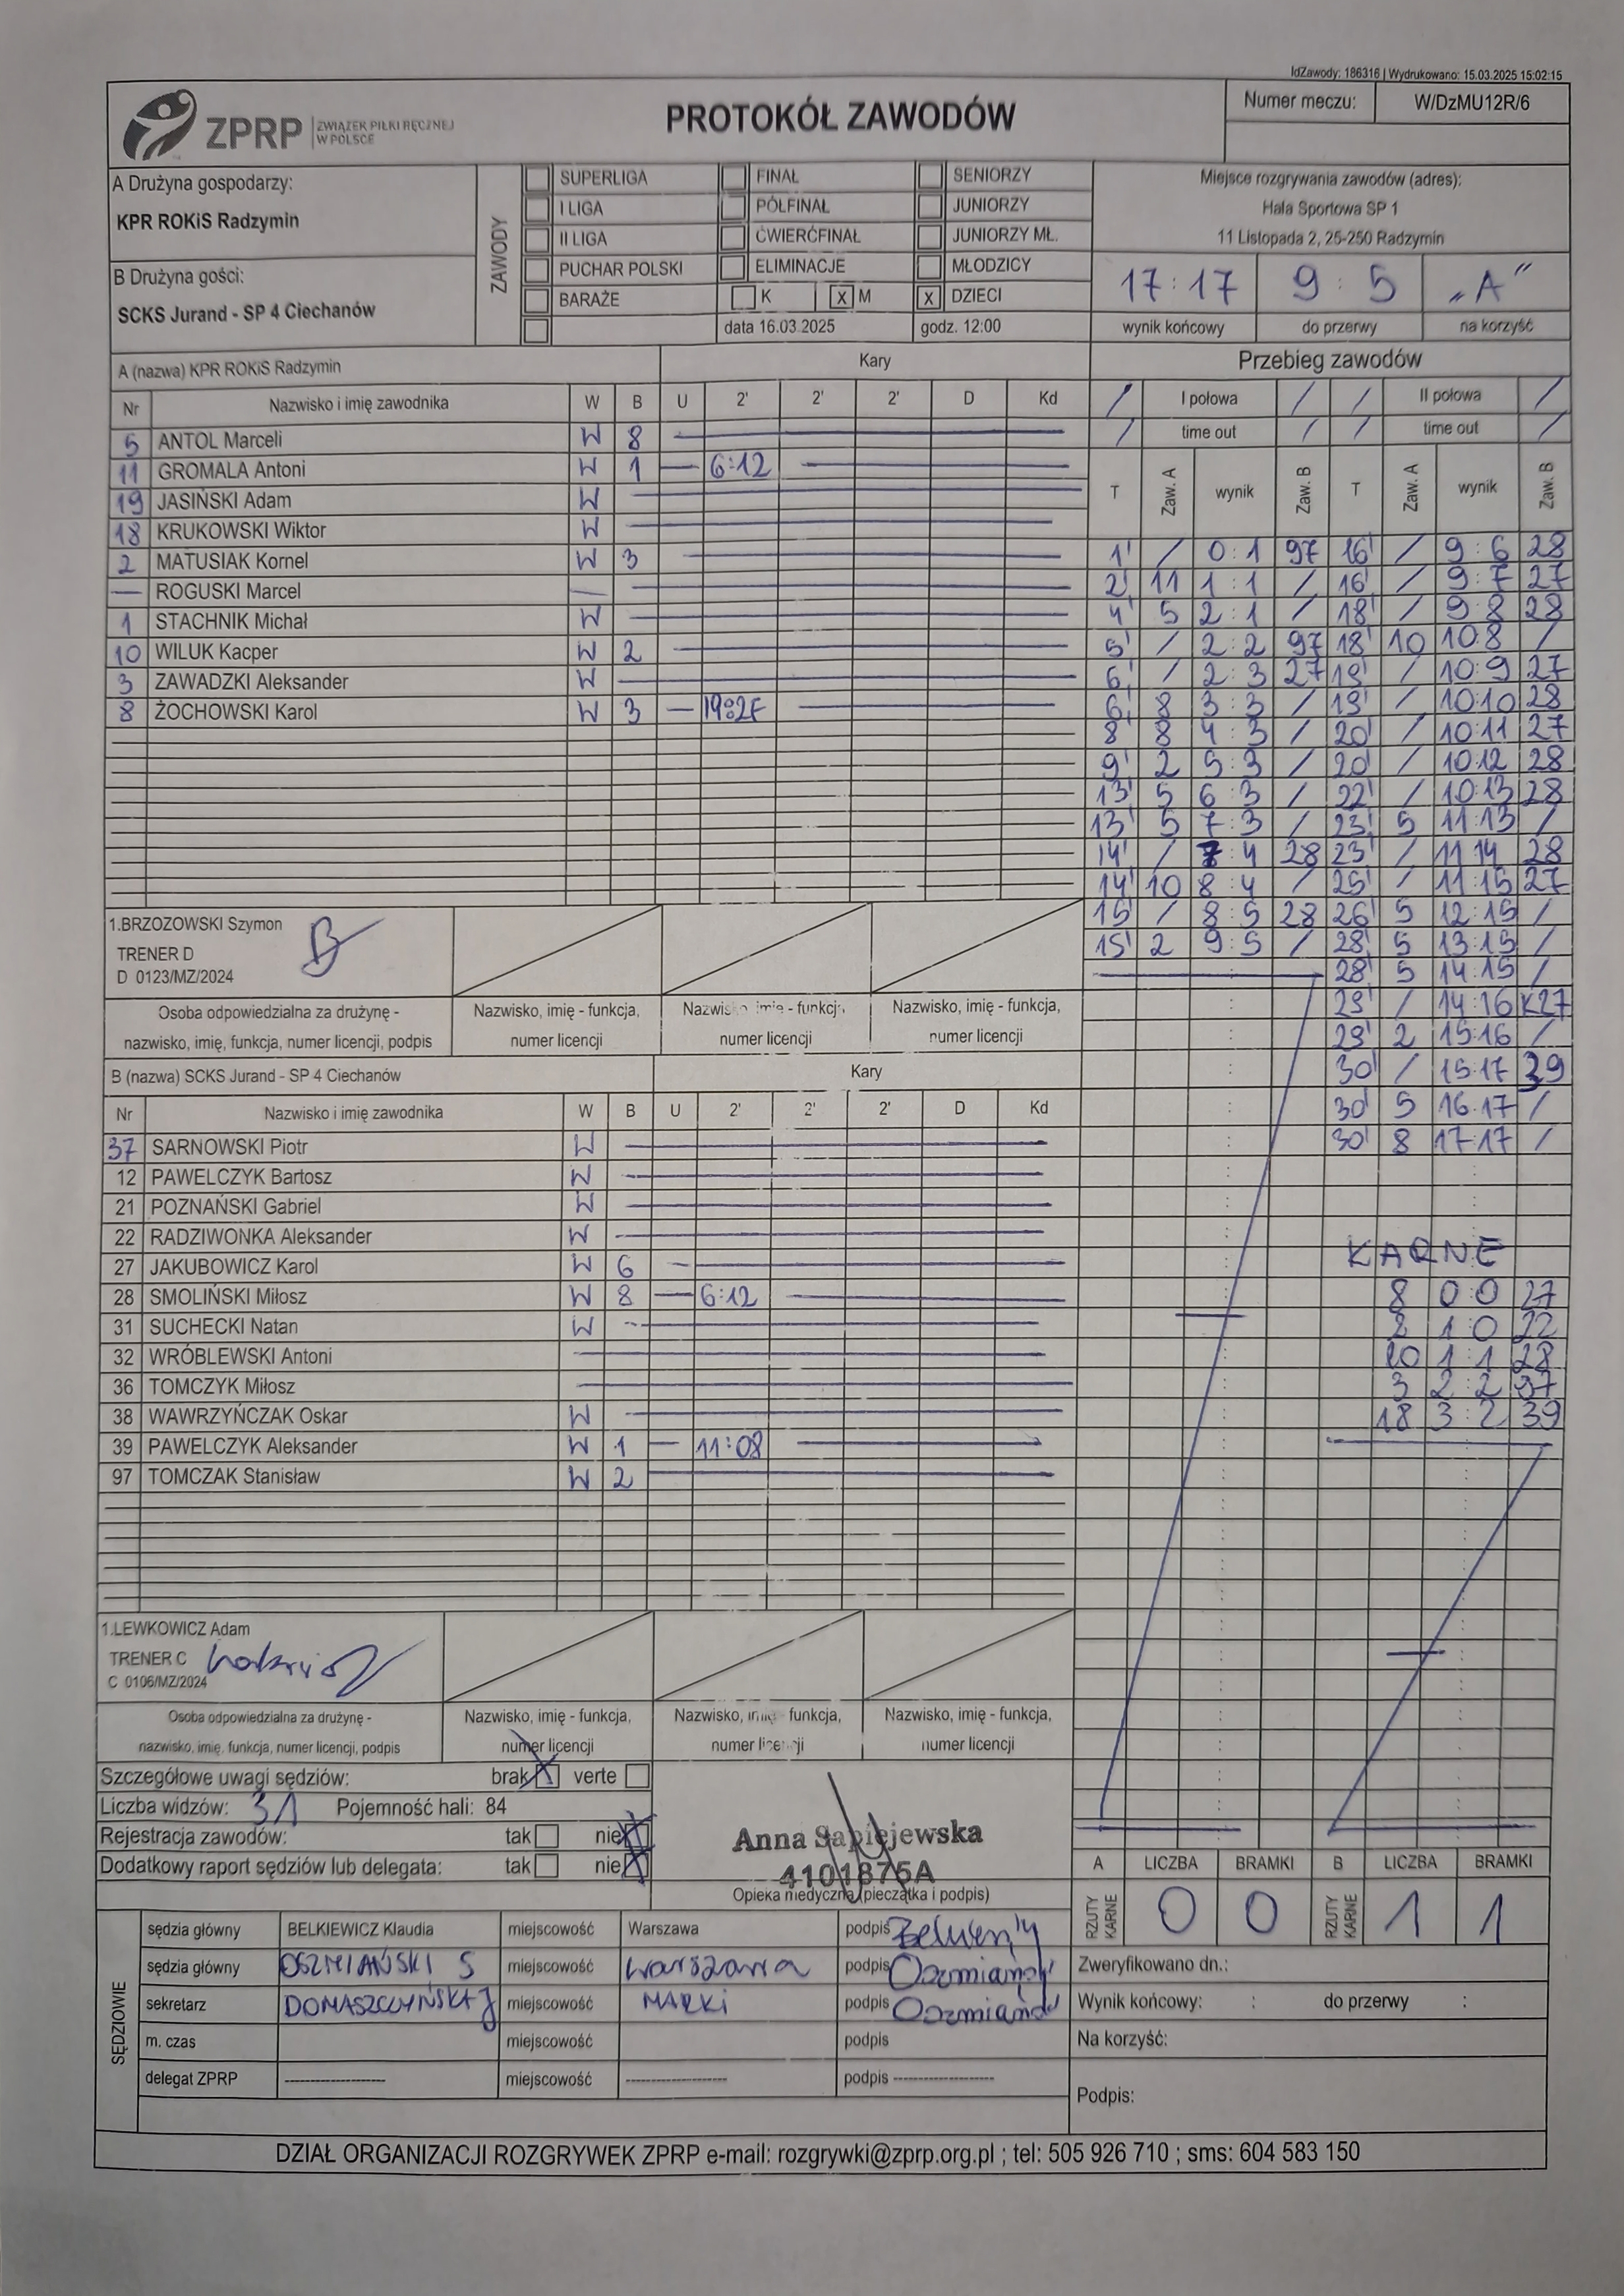 IdZawody: 186316 | Wydrukowano: 15.03.2025 15:02:15
ZPRP ZWIĄZEK PIŁKI RĘCZNEJ W POLSCE
PROTOKÓŁ ZAWODÓW
Numer meczu: W/DzMU12R/6
A Drużyna gospodarzy:
KPR ROKiS Radzymin
B Drużyna gości:
SCKS Jurand - SP 4 Ciechanów
ZAWODY
SUPERLIGA FINAŁ SENIORZY
I LIGA PÓŁFINAŁ JUNIORZY
II LIGA ĆWIERĆFINAŁ JUNIORZY MŁ.
PUCHAR POLSKI ELIMINACJE MŁODZICY
BARAŻE K X M X DZIECI
data 16.03.2025 godz. 12:00
Miejsce rozgrywania zawodów (adres):
Hala Sportowa SP 1
11 Listopada 2, 25-250 Radzymin
17:17 9:5 „A"
wynik końcowy do przerwy na korzyść
A (nazwa) KPR ROKiS Radzymin Kary
Nr Nazwisko i imię zawodnika W B U 2' 2' 2' D Kd
5 ANTOL Marceli W 8
11 GROMALA Antoni W 1 — 6:12
19 JASIŃSKI Adam W
18 KRUKOWSKI Wiktor W
2 MATUSIAK Kornel W 3
— ROGUSKI Marcel
1 STACHNIK Michał W
10 WILUK Kacper W 2
3 ZAWADZKI Aleksander W
8 ŻOCHOWSKI Karol W 3 —
1.BRZOZOWSKI Szymon
TRENER D
D 0123/MZ/2024
Osoba odpowiedzialna za drużynę - nazwisko, imię, funkcja, numer licencji, podpis
Nazwisko, imię - funkcja, numer licencji
Nazwisko, imię - funkcja, numer licencji
Nazwisko, imię - funkcja, numer licencji
B (nazwa) SCKS Jurand - SP 4 Ciechanów Kary
Nr Nazwisko i imię zawodnika W B U 2' 2' 2' D Kd
37 SARNOWSKI Piotr W
12 PAWELCZYK Bartosz W
21 POZNAŃSKI Gabriel W
22 RADZIWONKA Aleksander W
27 JAKUBOWICZ Karol W 6
28 SMOLIŃSKI Miłosz W 8 — 6:12
31 SUCHECKI Natan W
32 WRÓBLEWSKI Antoni
36 TOMCZYK Miłosz
38 WAWRZYŃCZAK Oskar W
39 PAWELCZYK Aleksander W 1 — 11:08
97 TOMCZAK Stanisław W 2
1.LEWKOWICZ Adam
TRENER C
C 0106/MZ/2024
Osoba odpowiedzialna za drużynę - nazwisko, imię, funkcja, numer licencji, podpis
Nazwisko, imię - funkcja, numer licencji
Nazwisko, imię - funkcja, numer licencji
Nazwisko, imię - funkcja, numer licencji
Przebieg zawodów
/ I połowa / / II połowa /
/ time out / / time out /
T Zaw. A wynik Zaw. B T Zaw. A wynik Zaw. B
1' / 0:1 97 16' / 9:6 28
2' 11 1:1 / 16' / 9:7 27
4' 5 2:1 / 18' / 9:8 28
5' / 2:2 97 18' 10 10:8 /
6' / 2:3 27 19' / 10:9 27
6' 8 3:3 / 19' / 10:10 28
8' 8 4:3 / 20' / 10:11 27
9' 2 5:3 / 20' / 10:12 28
13' 5 6:3 / 22' / 10:13 28
13' 5 7:3 / 23' 5 11:13 /
14' / 7:4 28 23' / 11:14 28
14' 10 8:4 / 25' / 11:15 27
15' / 8:5 28 26' 5 12:15 /
15' 2 9:5 / 28' 5 13:15 /
28' 5 14:15 /
29' / 14:16 K27
29' 2 15:16 /
30' / 15:17 39
30' 5 16:17 /
30' 8 17:17 /
KARNE
8 0:0 27
2 1:0 22
10 1:1 28
3 2:2 37
18 3:2 39
Szczegółowe uwagi sędziów: brak X verte
Liczba widzów: 31 Pojemność hali: 84
Rejestracja zawodów: tak nie X
Dodatkowy raport sędziów lub delegata: tak nie X
Anna Sapiejewska
4101875A
Opieka medyczna (pieczątka i podpis)
A LICZBA BRAMKI B LICZBA BRAMKI
RZUTY KARNE 0 0 RZUTY KARNE 1 1
SĘDZIOWIE
sędzia główny BELKIEWICZ Klaudia miejscowość Warszawa podpis
sędzia główny OSZMIAŃSKI S miejscowość Warszawa podpis
sekretarz DOMASZCZYŃSKA J miejscowość MARKI podpis
m. czas miejscowość podpis
delegat ZPRP -------------------- miejscowość -------------------- podpis --------------------
Zweryfikowano dn.:
Wynik końcowy: : do przerwy :
Na korzyść:
Podpis:
DZIAŁ ORGANIZACJI ROZGRYWEK ZPRP e-mail: rozgrywki@zprp.org.pl ; tel: 505 926 710 ; sms: 604 583 150